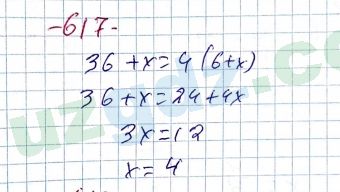 -617-
36+x=4(6+x)
36+x=24+4x
3x=12
x=4